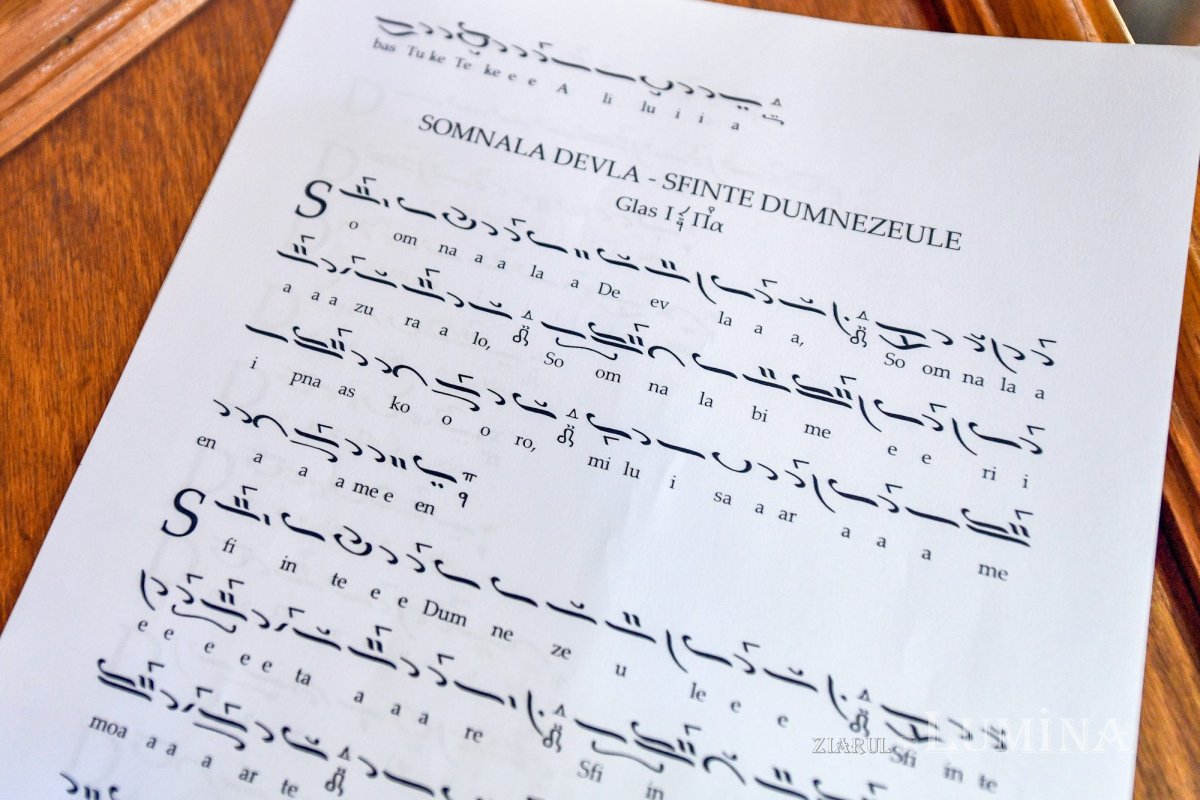 bas Tu ke Te ke e e A li lu i i a
SOMNALA DEVLA - SFINTE DUMNEZEULE
Glas I Πα
S o om na a a la a De ev la a a, So om na la a
a a a zu ra a lo, So om na la bi me e e ri i
i pna as ko o o ro, mi lu i sa a ar a a a me
en a a a me e en
S fi in te e e Dum ne ze u le e e Sfi in te
e e e e e ta a a a re Sfi in
moa a a a ar te
ZIARUL LUMINA